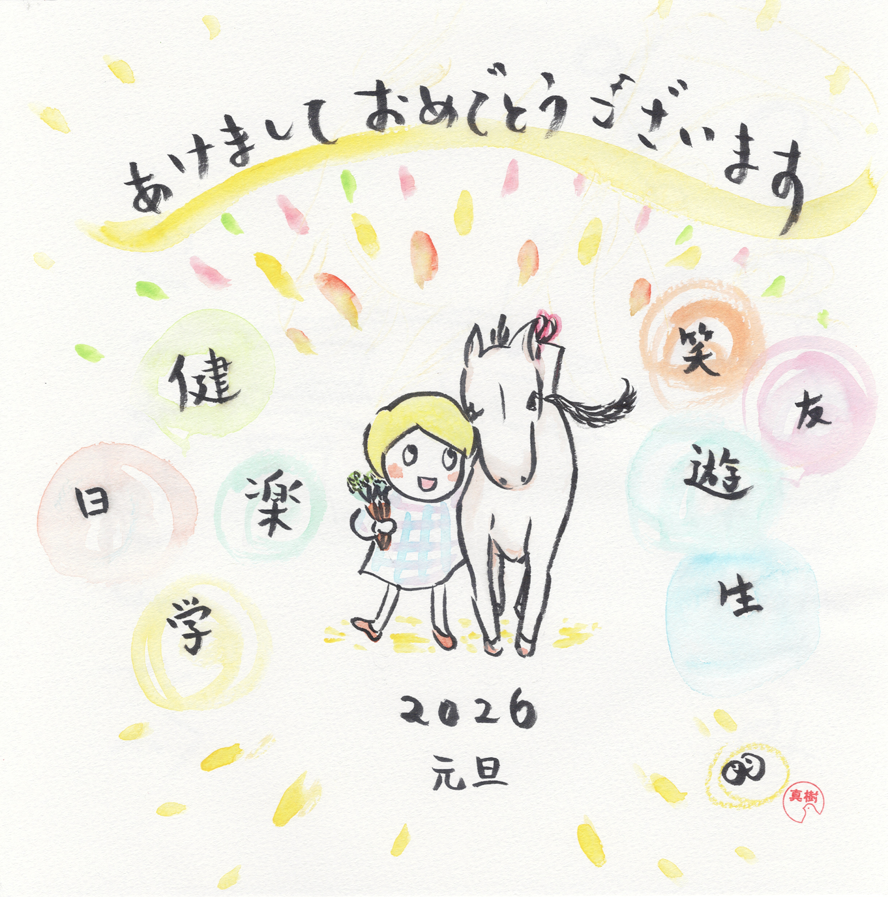 あけまして おめでとう ございます
健
日
楽
学
笑
友
遊
生
2026
元旦
真樹